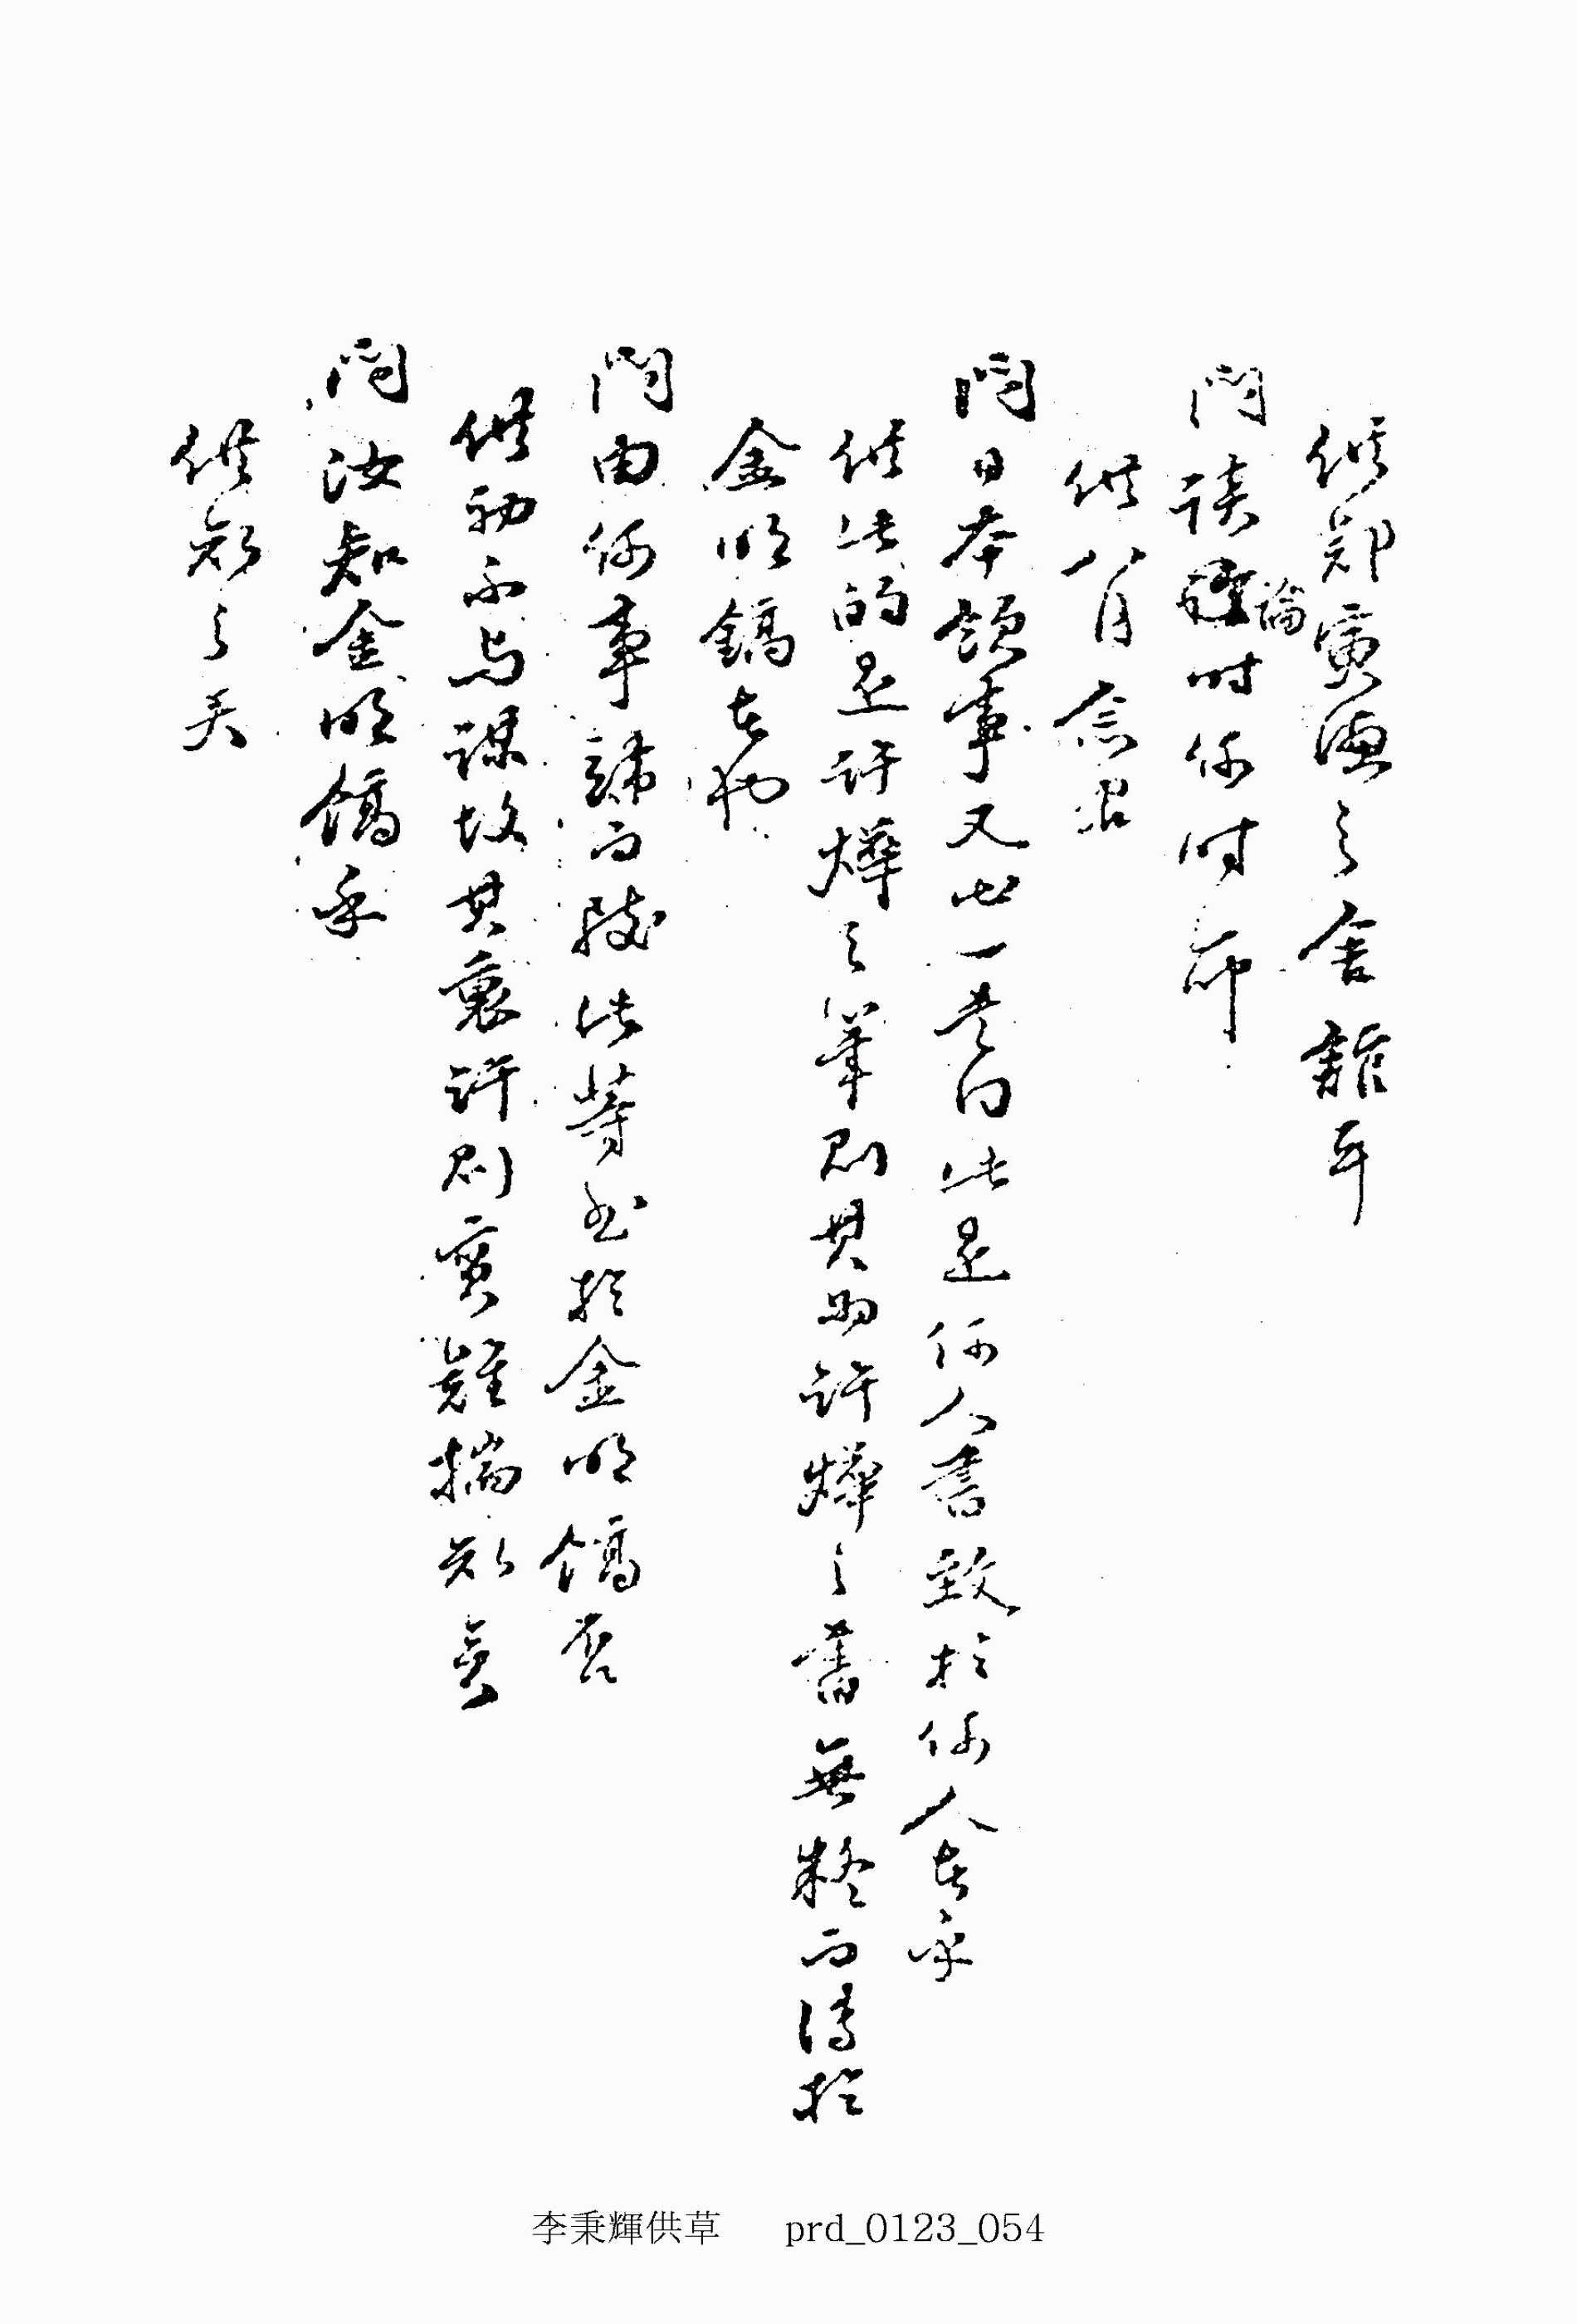 供鄭寅德之舍館耳
問談論時何時耶
供八月念
問日本領事又出一書曰此是何人書致於何人者乎
供此的是許燁之筆則其為許燁之書無疑而傳於
金明鎬者也
問由何事端而致此等書於金明鎬否
供初不与謀故其裏許則實難揣知矣
問汝知金明鎬乎
供知之矣
李秉輝供草 prd_0123_054